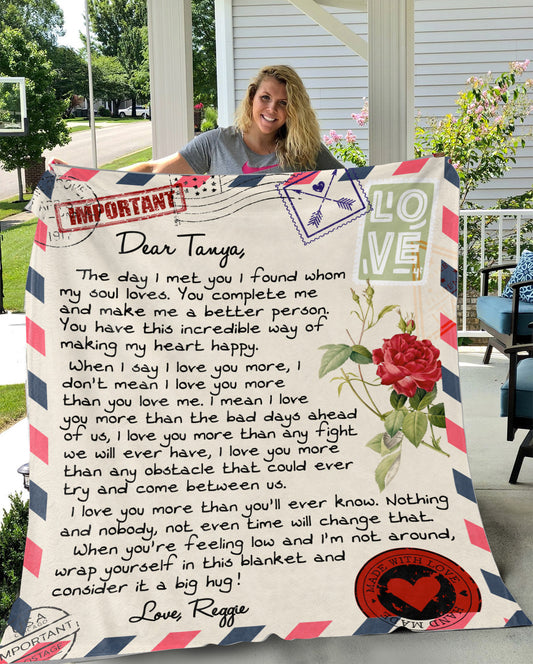 IMPORTANT
LOVE
Dear Tanya,
The day I met you I found whom
my soul loves. You complete me
and make me a better person.
You have this incredible way of
making my heart happy.
When I say I love you more, I
don't mean I love you more
than you love me. I mean I love
you more than the bad days ahead
of us, I love you more than any fight
we will ever have, I love you more
than any obstacle that could ever
try and come between us.
I love you more than you'll ever know. Nothing
and nobody, not even time will change that.
When you're feeling low and I'm not around,
wrap yourself in this blanket and
consider it a big hug!
Love, Reggie
MADE WITH LOVE
HAND MADE
IMPORTANT